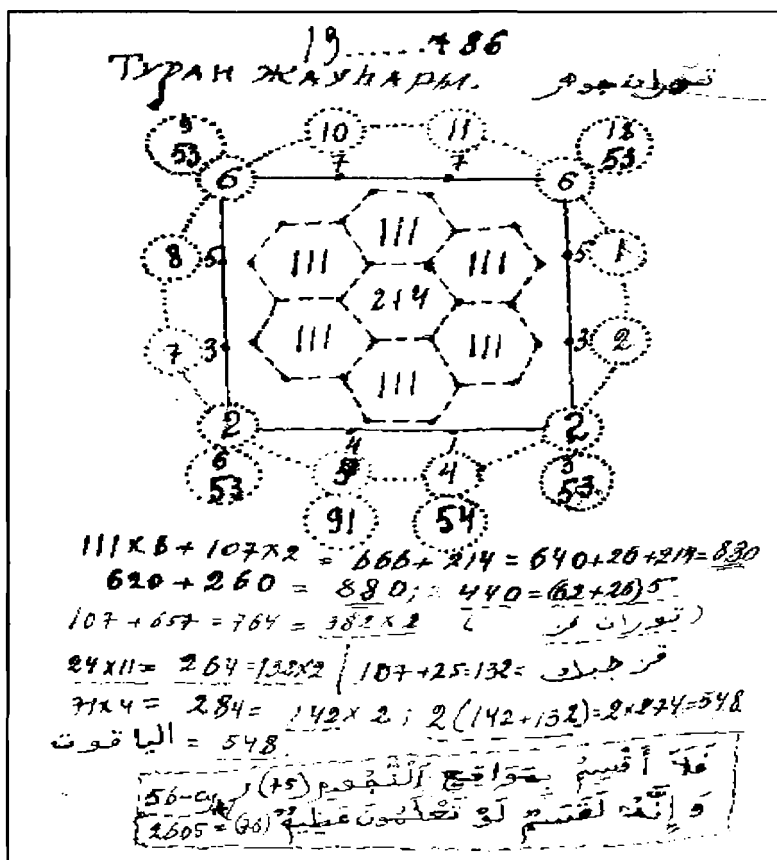 19.......786
ТУРАН ЖАУҺАРЫ. توران جوهر
9 10 11 18
53 7 7 53
6 6
111
8 5 111 111 5 1
214
7 3 111 111 3 2
111
2 2
6 4 1
53 4 53
91 54
111 x 6 + 107 x 2 = 666 + 214 = 640 + 26 + 214 = 880
620 + 260 = 880; = 440 = (62 + 26) 5
107 + 657 = 764 = 382 x 2 ( توران )
24 x 11 = 264 = 132 x 2 | 107 + 25 = 132 =
71 x 4 = 284 = 142 x 2 ; 2 (142 + 132) = 2 x 274 = 548
الياقوت = 548
فَلَا أُقْسِمُ بِمَوَاقِعِ النُّجُومِ (75) 56-
وَإِنَّهُ لَقَسَمٌ لَوْ تَعْلَمُونَ عَظِيمٌ (76) = 2605